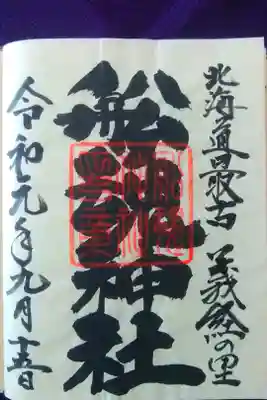 北海道最古 義経の里
船魂神社
令和元年九月十五日